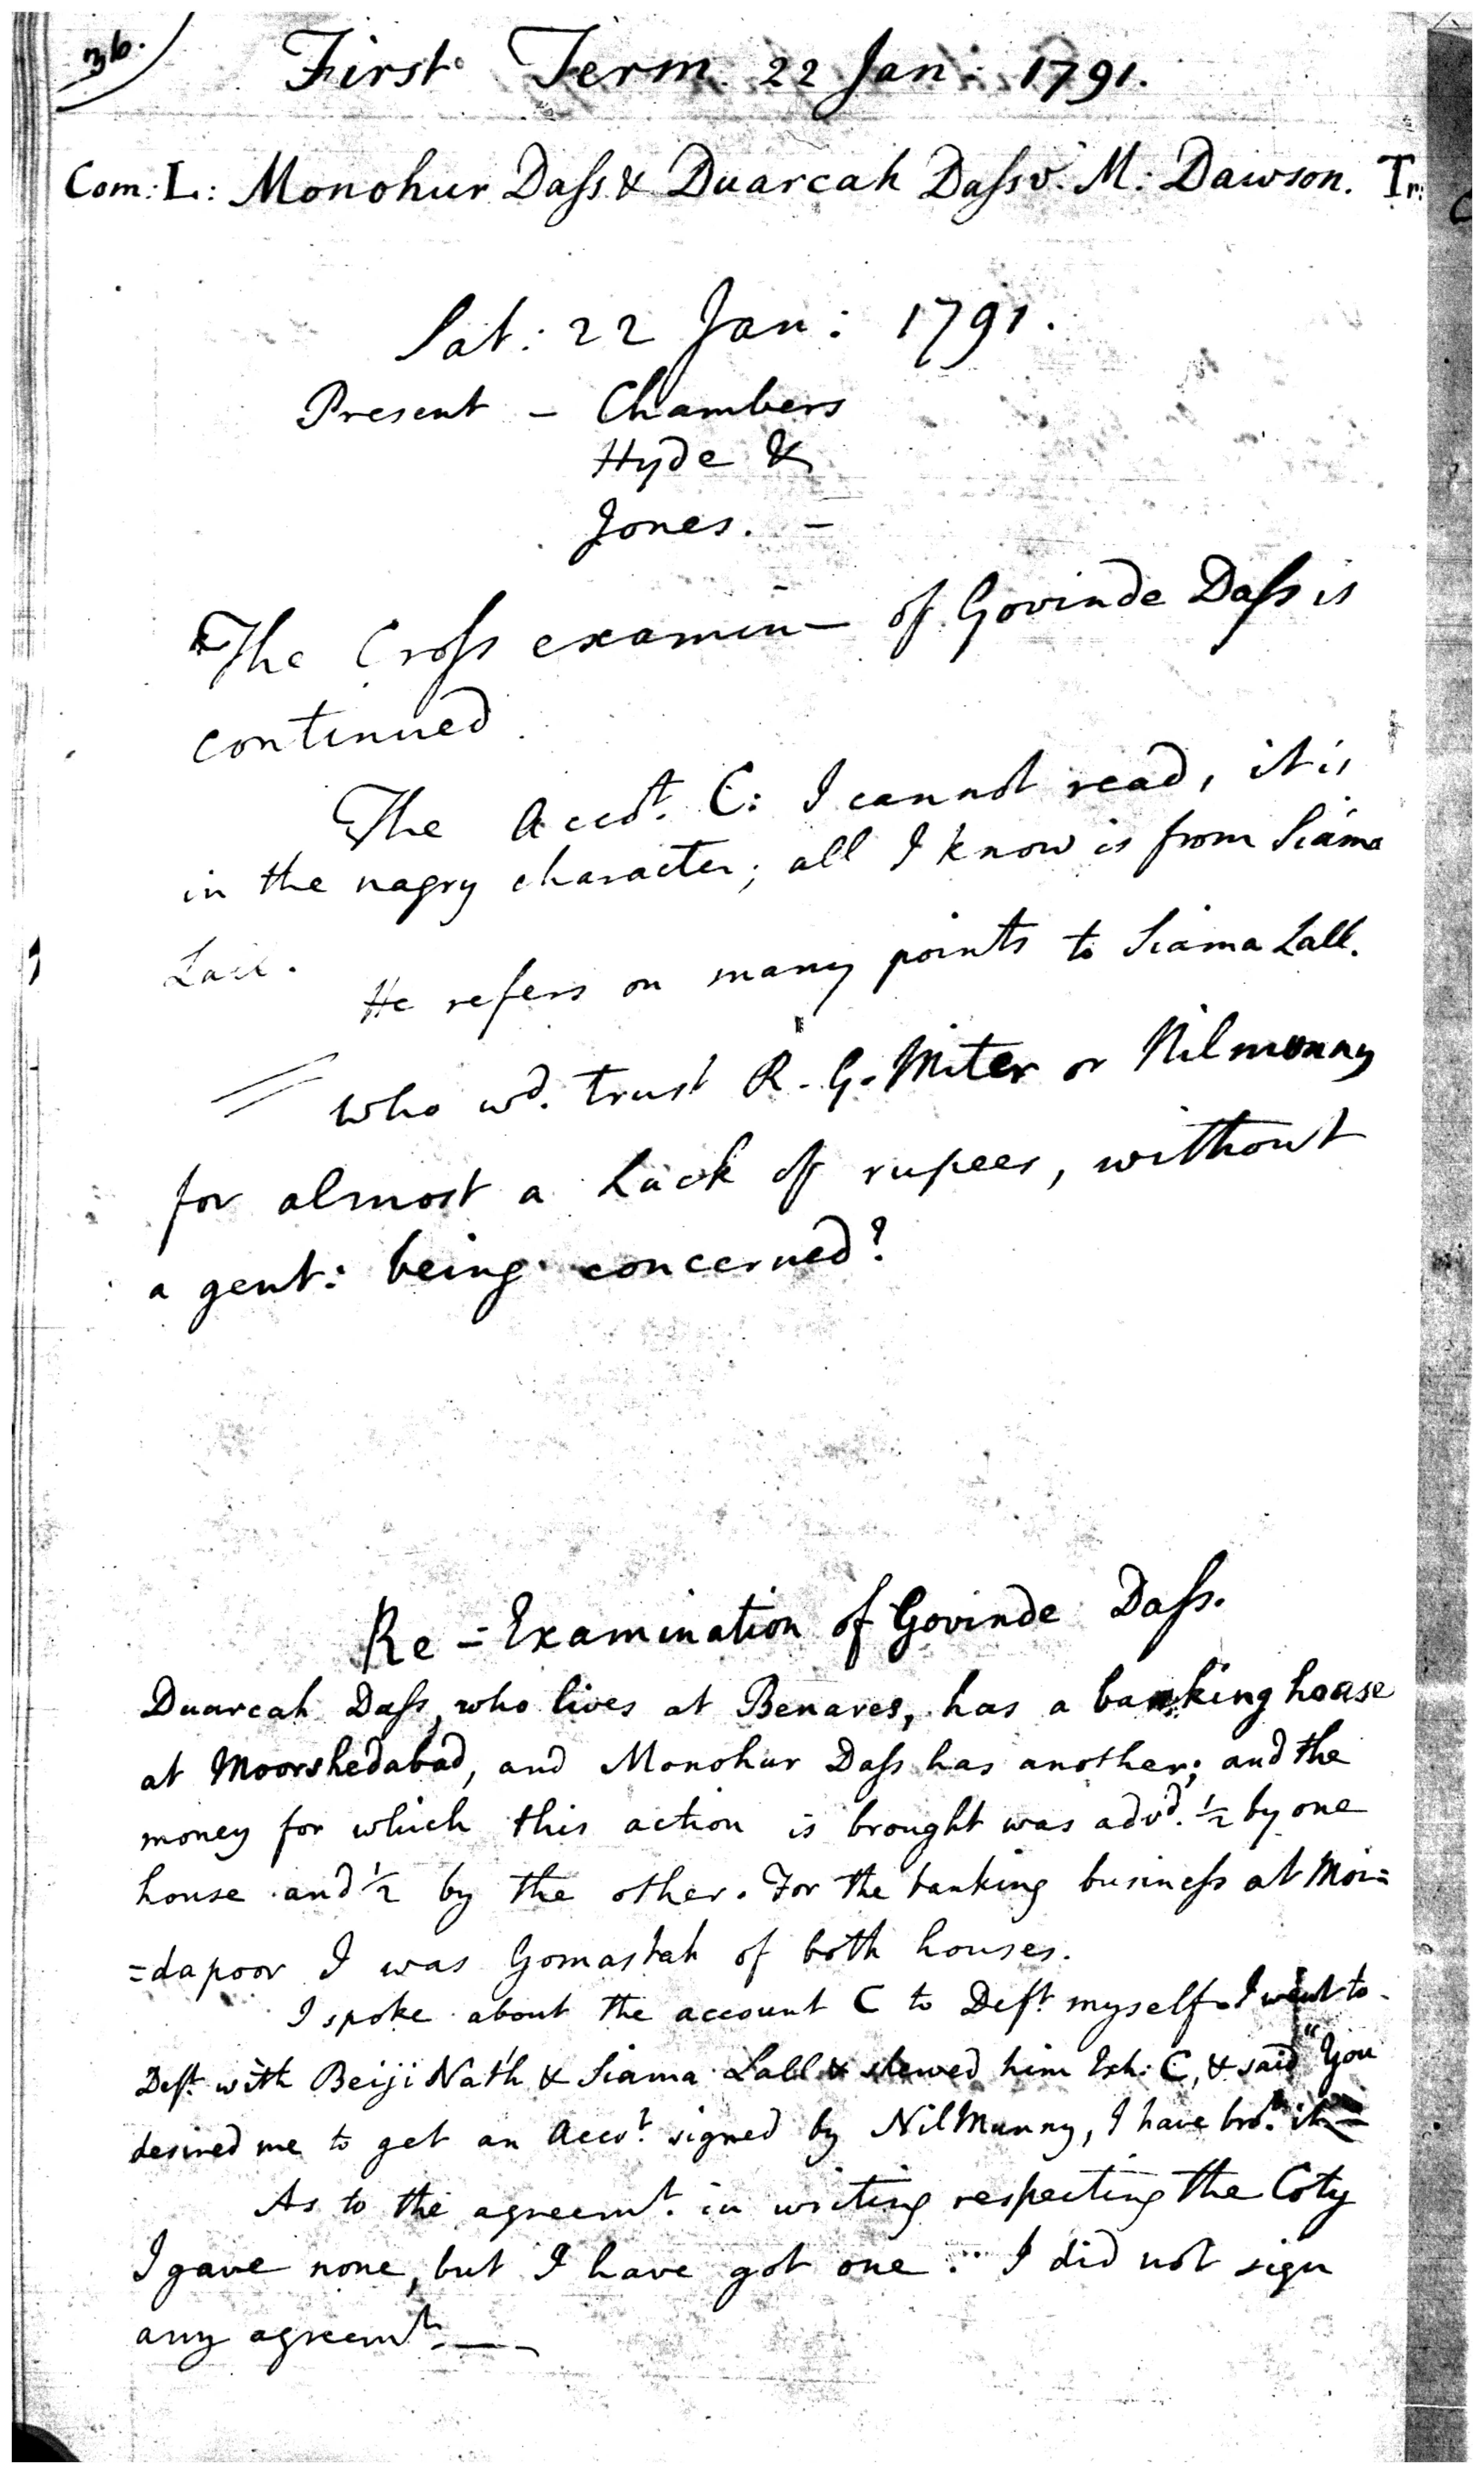 36.
First Term. 22 Jan: 1791.
Com: L: Monohur Dass & Duarcah Dass v. M: Dawson. Tr:
Sat: 22 Jan: 1791.
Present - Chambers
Hyde &
Jones. -
The Cross examin- of Govinde Dass is
continued
The Accot. C: I cannot read, it is
in the nagry character; all I know is from Siama
Lall.
He refers on many points to Siama Lall.
Who wd. trust R. G. Miter or Nilmunny
for almost a Lack of rupees, without
a gent: being concerned?
Re=Examination of Govinde Dass.
Duarcah Dass, who lives at Benares, has a banking house
at Moorshedabad, and Monohur Dass has another; and the
money for which this action is brought was advd. ½ by one
house and ½ by the other. For the banking business at Moi=
=dapoor I was Gomastah of both houses.
I spoke about the account C to Deft myself. I went to
Deft. with Beiji Nath & Siama Lall & shewed him Exh: C, & said "You
desired me to get an Accot. signed by NilMunny, I have brot. it -
As to the agreemt. in writing respecting the Coty
I gave none, but I have got one: I did not sign
any agreemt. —